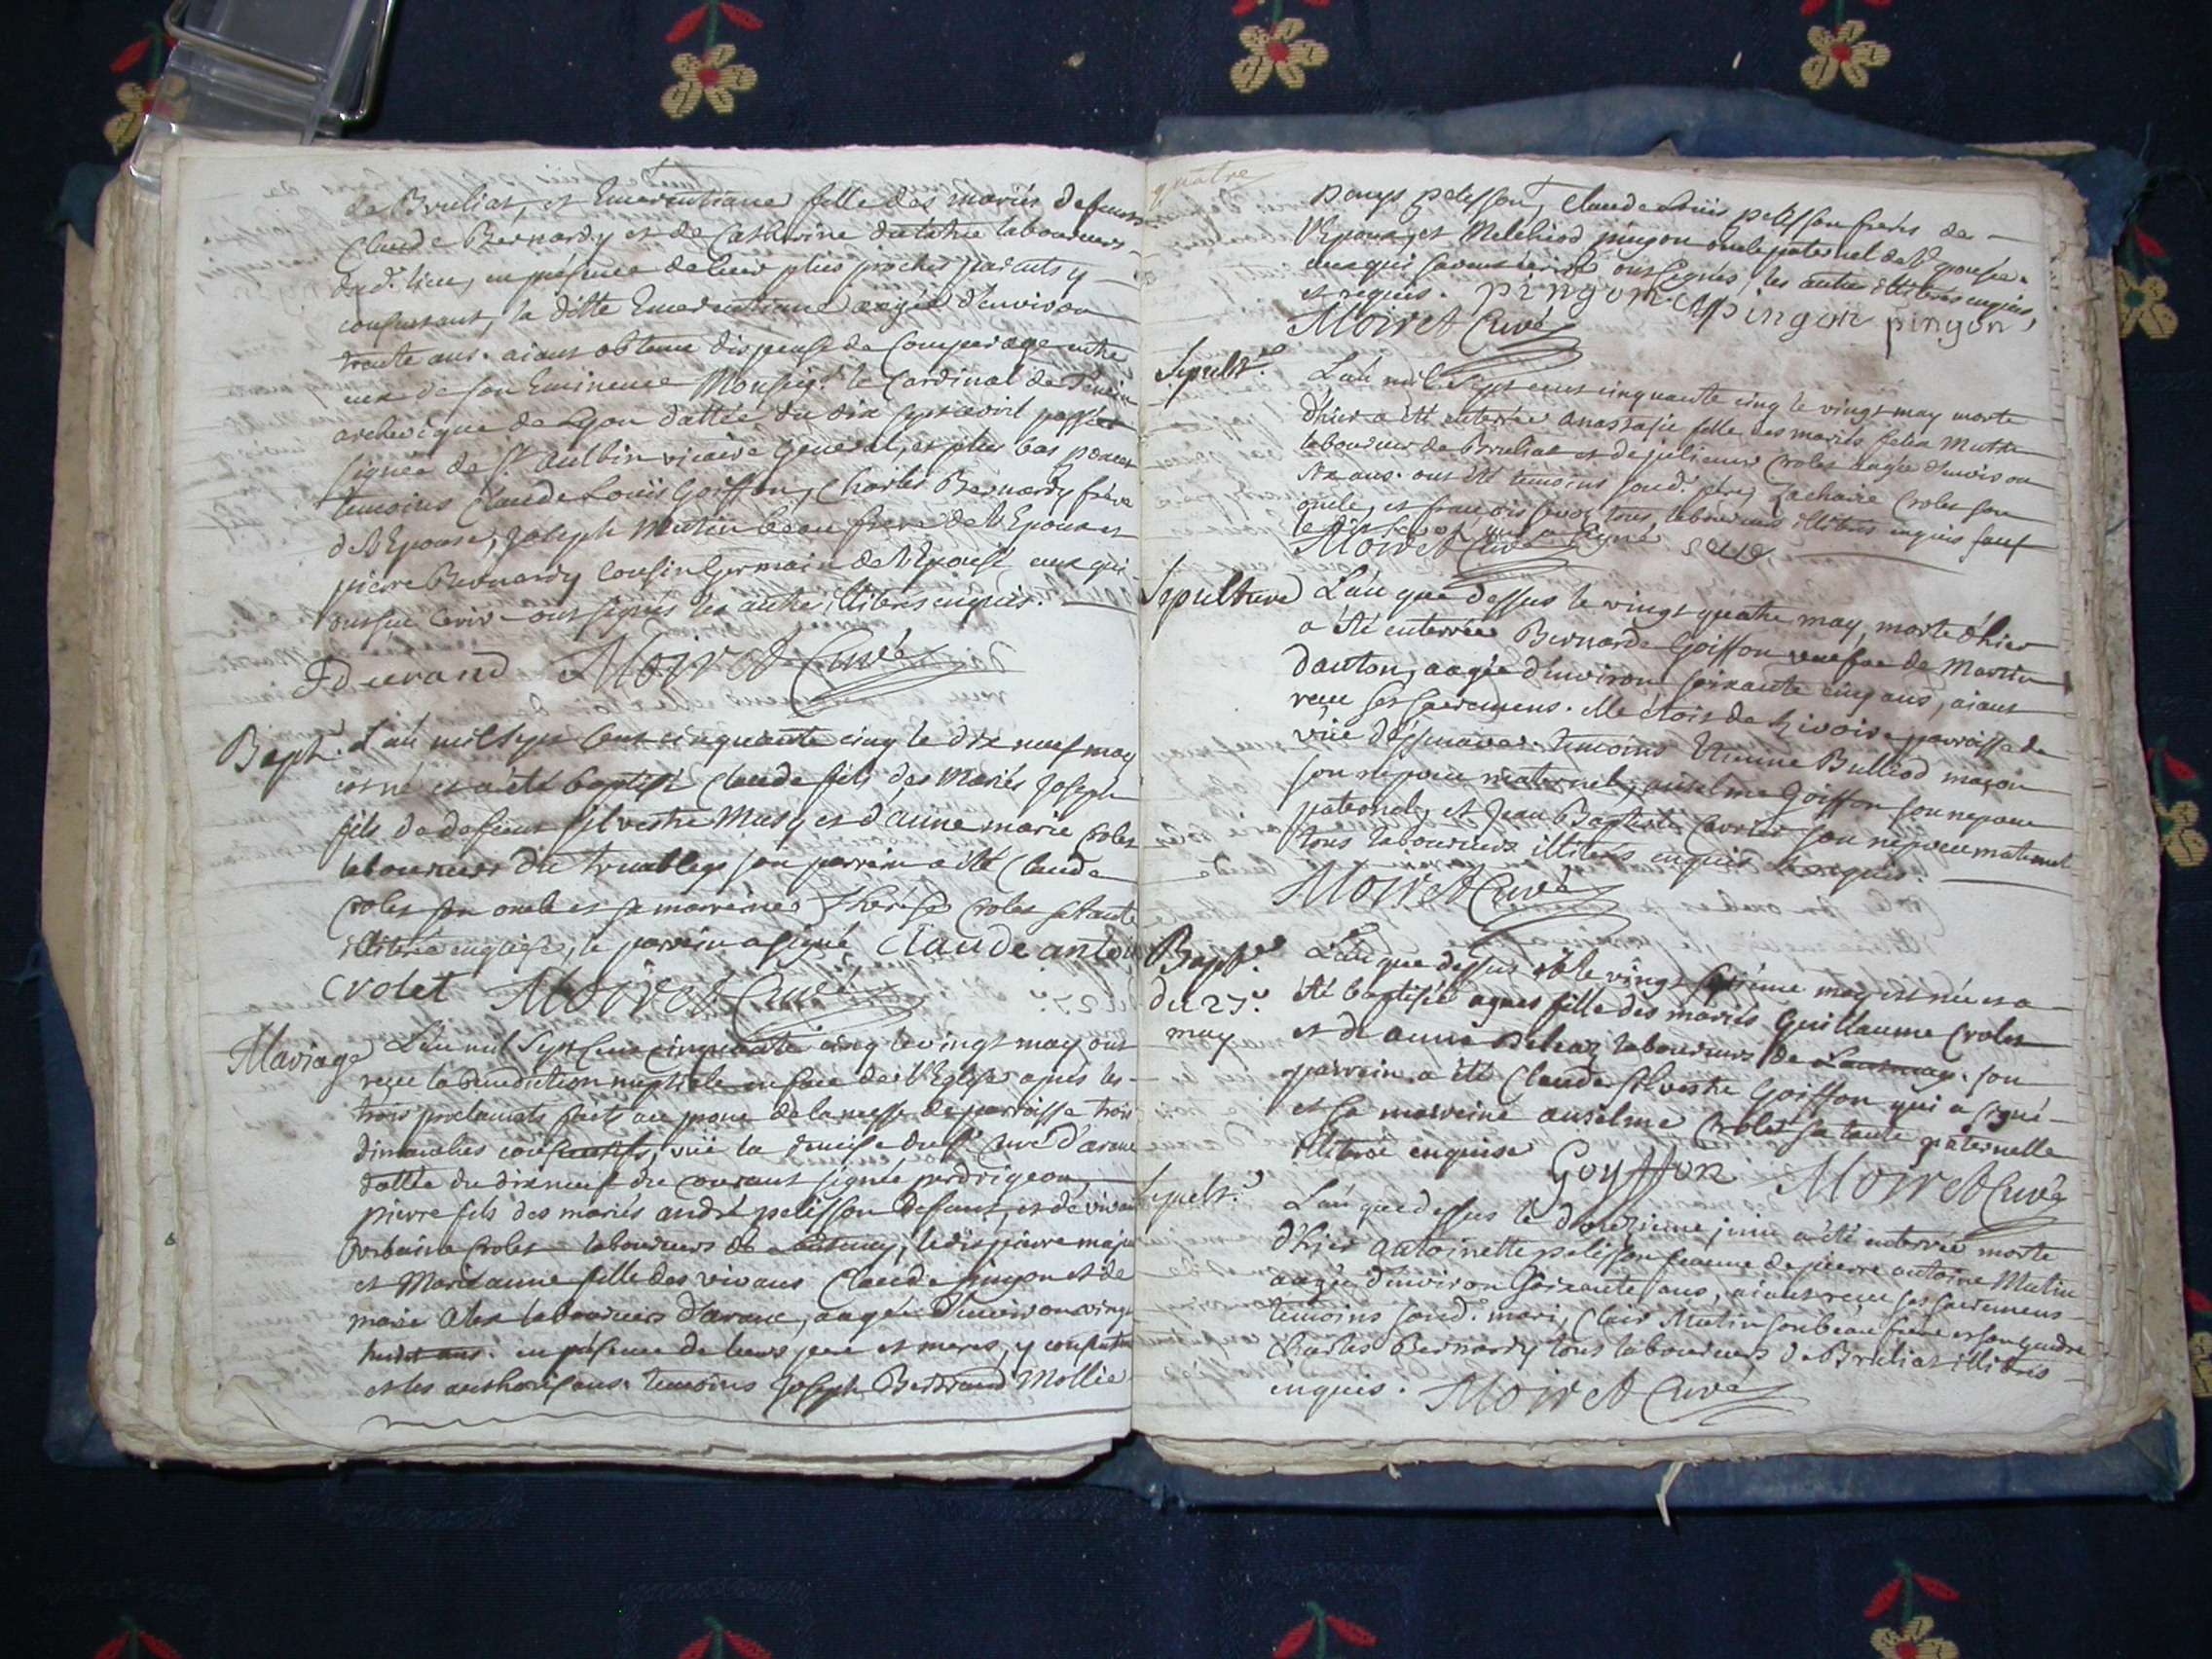 de Bruliat, et Emerentiane fille des mariés defunts
Claude Bernardy et de Catherine laboureurs
dud. lieu, en présence de leurs plus proches parents y
consentant, la ditte Emerentiane aagée d'environ
trente ans. aiant obtenu dispense de Comperage entre
eux de son Eminence Monseigr. le Cardinal de Tencin
archeveque de Lyon dattée du dix sept avril passé
signée de St. Aulbin vicaire General, et plus bas
temoins Claude Louis Goiffon, Charles Bernardy frère
de l'Epouse, Joseph Mutin beau frere de l'Epoux et
pierre Bernardy Cousin Germain de l'Epouse ceux qui
ont sçu ecrire ont signés les autre illiterés enquis.
Durand Moiret Curé
Bapt. L'an mil sept cent cinquante cinq le dix neuf may
est né et a été baptisé Claude fils des Mariés Joseph
fils de defunt silvestre Musy et d'anne marie Crolet
laboureurs du son parrein a été Claude
Crolet son oncle et sa marreine Thérèse Crolet sa tante
illiterée enquise, le parrein a signé Claude antoi
Crolet Moiret Curé
Mariage L'an mil Sept Cent cinquante cinq le vingt may ont
receu la benediction nuptiale en face de l'Eglise après les
trois proclamats faits au prone de la messe de parroisse trois
dimanches consecutifs, vüe la remise du Sr. curé d'arane
dattée du dixneuf du courant signée perdrigeon,
pierre fils des mariés andré pelisson defunt, et de vivan
Urbaine Crolet laboureurs de Lantenay, ledit pierre majeu
et Marieanne fille des vivans Claude pingon et de
marie laboureurs d'arane, aagée d'environ vingt
huit ans. en présence de leurs pere et meres, y consentan
et les authorisans. temoins Joseph Bertrand Mollie
quatre
pelisson, Claude Louis pelisson frerés de
l'Epoux, et Melchiod pingon oncle paternel de l'Epouse.
ceux qui savent écrire ont signés, les autres illiterés enquis,
et requis. pingon pingon pingon
Moiret Curé
Sepultr. L'an mil Sept cent cinquante cinq le vingt may morte
d'hier a été enterrée anastasie fille des mariés felix Mutin
laboureur de Bruliat et de julienne Crolet aagée d'environ
six ans. ont été temoins sond. père, Zacharie Crolet son
oncle, et françois tous laboureurs illiterés enquis sauf
le dit qui a signé
Moiret Curé
Sepulture L'an que dessus le vingt quatre may, morte d'hier
a été enterrée Bernarde Goiffon veufve de Martin
danton, aagée d'environ soixante cinq ans, aiant
receu ses sacremens. elle étoit de parroisse de
temoins Etienne Bulliod maçon
son nepveu maternel, anselme Goiffon son nepveu
paternel, et Jean Baptiste Carrier son nepveu maternel
tous laboureurs illiterés enquis et requis.
Moiret Curé
Bapt.
du 27.
may
L'an que dessus le vingt septième may est née et a
été baptisée agnes fille des mariés Guillaume Crolet
et de anne laboureurs de Lantenay. son
parrein a été Claude Silvestre Goiffon qui a signé
et sa marreine anselme Crolet sa tante paternelle
illiterée enquise Goyffon Moiret Curé
Sepultr. L'an que dessus le douzieme juin a été enterrée morte
d'hier antoinette pelisson femme de pierre antoine Mutin
aagée d'environ soixante ans, aiant receu ses sacremens
temoins sond. mari, Clair Mutin son beau frere et son gendre
Charles Bernardy tous laboureurs de Bruliat illiterés
enquis. Moiret Curé